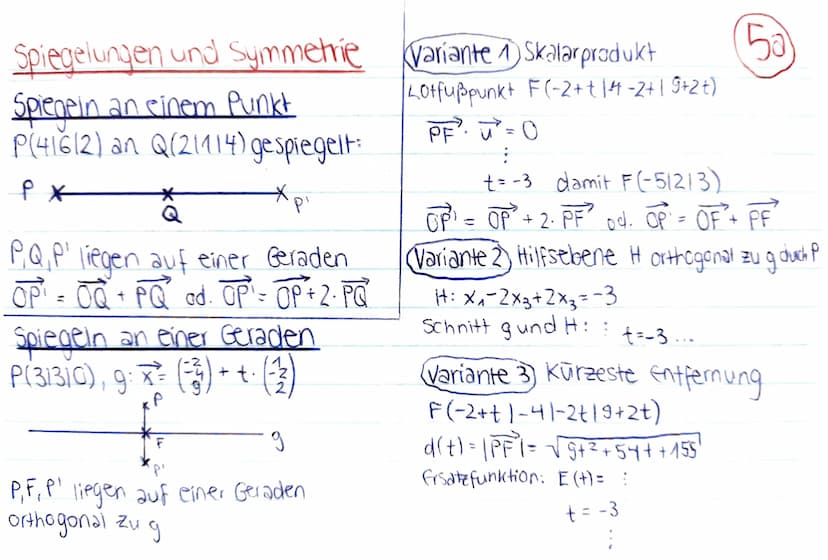 Spiegelungen und Symmetrie
Spiegeln an einem Punkt
P(4|6|2) an Q(2|1|4) gespiegelt:
P
Q
P'
P,Q,P' liegen auf einer Geraden
OP' = OQ + PQ od. OP' = OP + 2·PQ
Spiegeln an einer Geraden
P(3|3|0), g: x = (-2 -4 9) + t·(1 -2 2)
P
F
g
P'
P,F,P' liegen auf einer Geraden
orthogonal zu g
5a
Variante 1) Skalarprodukt
Lotfußpunkt F(-2+t|4-2+|9+2t)
PF · u = 0
⋮
t=-3 damit F(-5|2|3)
OP' = OP + 2·PF od. OP' = OF + PF
Variante 2) Hilfsebene H orthogonal zu g durch P
H: x₁-2x₃+2x₃=-3
Schnitt g und H: ⋮ t=-3...
Variante 3) Kürzeste Entfernung
F(-2+t|-4|-2t|9+2t)
d(t)=|PF|= √9t²+54t+155
Ersatzfunktion: E(t)= ⋮
t = -3
⋮